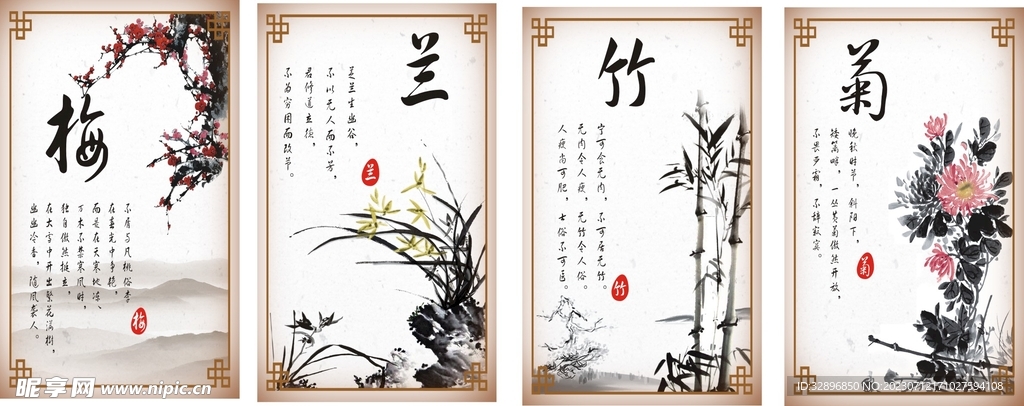 梅
不屑与凡桃俗李
在春光中争艳，
而是在天寒地冻、
万木不禁寒风时，
独自傲然挺立，
在大雪中开出繁花满树，
幽幽冷香，随风袭人。
梅
兰
芝兰生幽谷，
不以无人而不芳，
君修道立德，
不为穷困而改节。
兰
竹
宁可食无肉，不可居无竹。
无肉令人瘦，无竹令人俗。
人瘦尚可肥，士俗不可医。
竹
菊
晚秋时节，斜阳下，
矮篱畔，一丛黄菊傲然开放，
不畏严霜，不辞寂寞。
菊
昵享网 www.nipic.cn
ID:32896850 NO:20230212171027594108